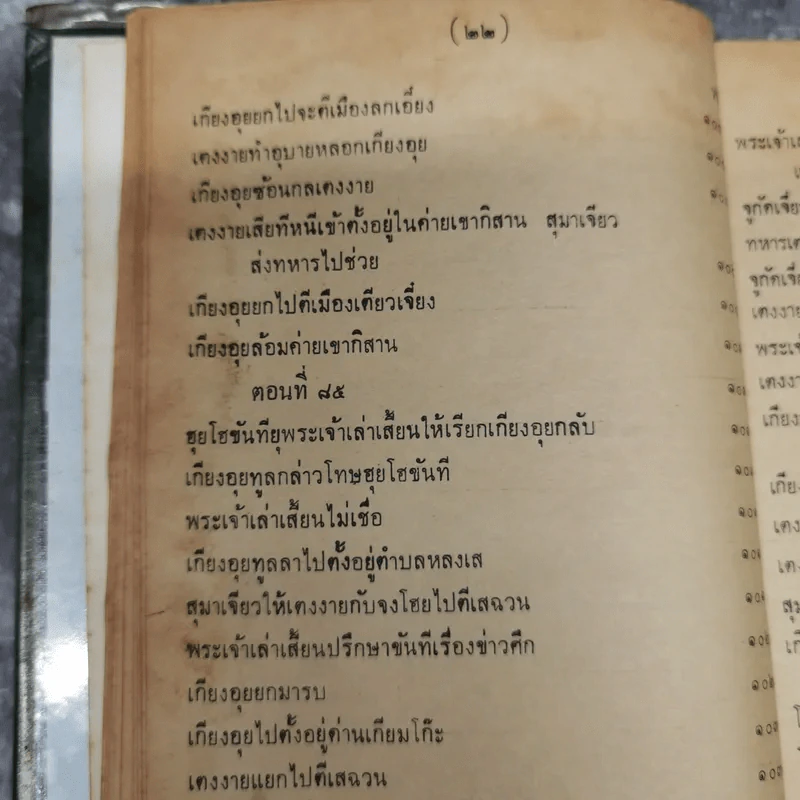 (๒๒)
เกียงอุยยกไปจะตีเมืองลกเอี๋ยง
เตงงายทำอุบายหลอกเกียงอุย
เกียงอุยซ้อนกลเตงงาย
เตงงายเสียทีหนีเข้าตั้งอยู่ในค่ายเขากิสาน สุมาเจียว
ส่งทหารไปช่วย
เกียงอุยยกไปตีเมืองเตียวเจี๋ยง
เกียงอุยล้อมค่ายเขากิสาน
ตอนที่ ๘๕
ฮุยโฮขันทียุพระเจ้าเล่าเสี้ยนให้เรียกเกียงอุยกลับ
เกียงอุยทูลกล่าวโทษฮุยโฮขันที
พระเจ้าเล่าเสี้ยนไม่เชื่อ
เกียงอุยทูลลาไปตั้งอยู่ตำบลหลงเส
สุมาเจียวให้เตงงายกับจงโฮยไปตีเสฉวน
พระเจ้าเล่าเสี้ยนปรึกษาขันทีเรื่องข่าวศึก
เกียงอุยยกมารบ
เกียงอุยไปตั้งอยู่ด่านเกียมโก๊ะ
เตงงายแยกไปตีเสฉวน
พระเจ้า
จูกัดเจี๋
ทหารเต
จูกัดเจี๋
เตงงาย
พระเจ้า
เตงงาย
เกียง